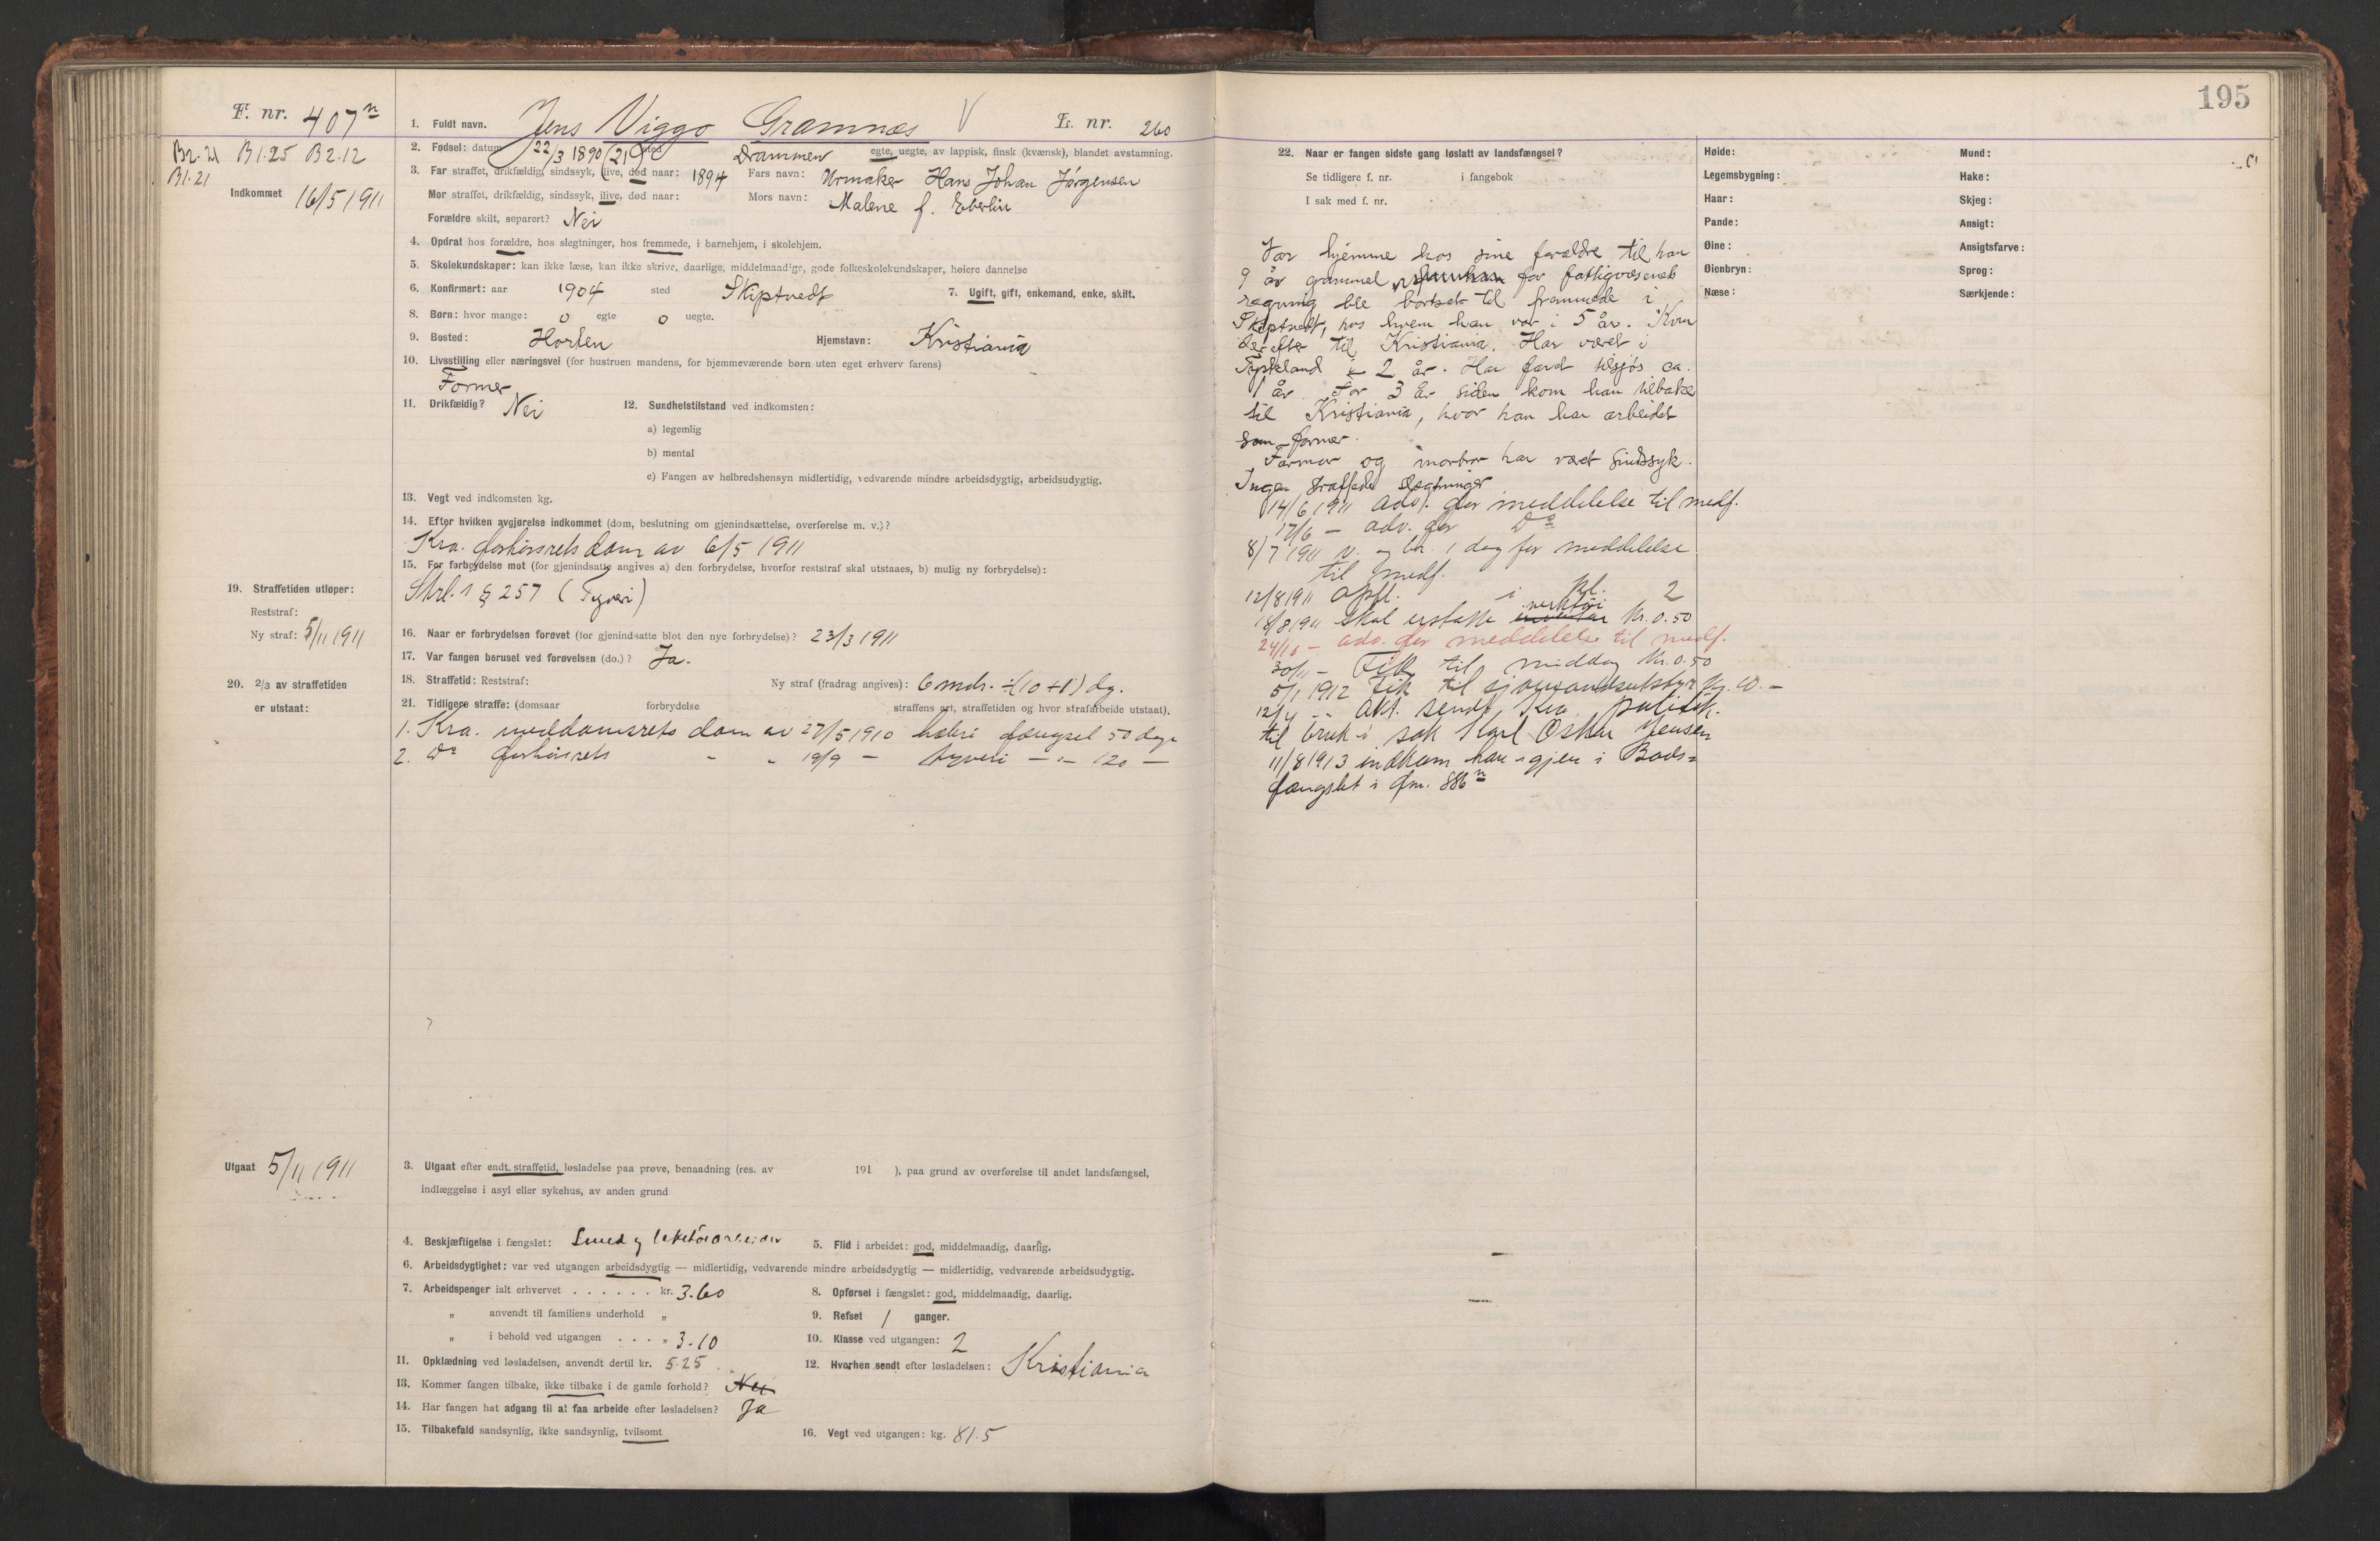 F. nr. 407 n
B2.21 B1.25 B2.12
B1.21
Indkommet 16/5 1911
1. Fuldt navn. Jens Viggo Gramnæs V L. nr. 260
2. Fødsel: datum 22/3 1890 (21) sted Drammen egte, uegte, av lappisk, finsk (kvænsk), blandet avstamning.
3. Far straffet, drikfældig, sindssyk, ilive, død naar: 1894 Fars navn: Urmaker Hans Johan Jørgensen
Mor straffet, drikfældig, sindssyk, ilive, død naar: Mors navn: Malene f. Eberlin
Forældre skilt, separert? Nei
4. Opdrat hos forældre, hos slegtninger, hos fremmede, i barnehjem, i skolehjem.
5. Skolekundskaper: kan ikke læse, kan ikke skrive, daarlige, middelmaadige, gode folkeskolekundskaper, høiere dannelse
6. Konfirmert: aar 1904 sted Skiptvedt 7. Ugift, gift, enkemand, enke, skilt.
8. Børn: hvor mange: 0 egte 0 uegte.
9. Bosted: Horten Hjemstavn: Kristiania
10. Livsstilling eller næringsvei (for hustruen mandens, for hjemmeværende børn uten eget erhverv farens)
Former
11. Drikfældig? Nei 12. Sundhetstilstand ved indkomsten:
a) legemlig
b) mental
c) Fangen av helbredshensyn midlertidig, vedvarende mindre arbeidsdygtig, arbeidsudygtig.
13. Vegt ved indkomsten kg.
14. Efter hvilken avgjørelse indkommet (dom, beslutning om gjenindsættelse, overførelse m. v.)?
Kra. forhørsrets dom av 6/5 1911
15. For forbrydelse mot (for gjenindsatte angives a) den forbrydelse, hvorfor reststraf skal utstaaes, b) mulig ny forbrydelse):
Strl. § 257 (Tyveri)
19. Straffetiden utløper:
Reststraf:
Ny straf: 5/11 1911
16. Naar er forbrydelsen forøvet (for gjenindsatte blot den nye forbrydelse)? 23/3 1911
17. Var fangen beruset ved forøvelsen (do.)? Ja.
18. Straffetid: Reststraf: Ny straf (fradrag angives): 6 mdr. ÷ (10 + 1) dg.
20. 2/3 av straffetiden
er utstaat:
21. Tidligere straffe: (domsaar forbrydelse straffens art, straffetiden og hvor strafarbeide utstaat).
1. Kra. meddomsrets dom av 27/5 1910 hæleri fængsel 50 dage
2. Do forhørsrets " " 19/9 — tyveri — " — 120 —
Utgaat 5/11 1911
3. Utgaat efter endt straffetid, løsladelse paa prøve, benaadning (res. av 191 ), paa grund av overførelse til andet landsfængsel,
indlæggelse i asyl eller sykehus, av anden grund
4. Beskjæftigelse i fængslet: Smed og 5. Flid i arbeidet: god, middelmaadig, daarlig.
6. Arbeidsdygtighet: var ved utgangen arbeidsdygtig — midlertidig, vedvarende mindre arbeidsdygtig — midlertidig, vedvarende arbeidsudygtig.
7. Arbeidspenger ialt erhvervet . . . . . . kr. 3.60 8. Opførsel i fængslet: god, middelmaadig, daarlig.
" anvendt til familiens underhold " 9. Refset 1 ganger.
" i behold ved utgangen . . . . " 3.10 10. Klasse ved utgangen: 2
11. Opklædning ved løsladelsen, anvendt dertil kr. 5.25 12. Hvorhen sendt efter løsladelsen: Kristiania
13. Kommer fangen tilbake, ikke tilbake i de gamle forhold? Nei
14. Har fangen hat adgang til at faa arbeide efter løsladelsen? Ja
15. Tilbakefald sandsynlig, ikke sandsynlig, tvilsomt 16. Vegt ved utgangen: kg. 81.5
195
22. Naar er fangen sidste gang løslatt av landsfængsel?
Se tidligere f. nr. i fangebok
I sak med f. nr.
Høide: Mund:
Legemsbygning: Hake:
Haar: Skjeg:
Pande: Ansigt:
Øine: Ansigtsfarve:
Øienbryn: Sprog:
Næse: Særkjende:
Var hjemme hos sine forældre til han
9 år gammel for fattigvæsenets
regning ble bortsat til fremmede i
Skiptvedt, hos hvem han var i 5 år. Kom
derefter til Kristiania. Har været i
Tyskland i 2 år. Har faret tilsjøs ca.
1 år. For 3 år siden kom han tilbake
til Kristiania, hvor han har arbeidet
som former.
Farmor og morbror har været sindssyk.
Ingen straffede slægtninger
14/6 1911 adv. for meddelelse til medf.
17/6 — adv. for Do
8/7 1911 v. og br. 1 dag for meddelelse
til medf.
12/8 1911 opfl. i kl. 2
18/8 1911 skal erstatte verktøi kr. 0.50
24/10 — adv. for meddelelse til medf.
30/11 — Fik til middag kr. 0.50
5/1 1912 fik til sjømandsutstyr kr. 10.—
12/4 — Akt. sendt Kra politik.
til bruk i sak Karl Oskar Jensen
11/8 1913 indkom han igjen i Bods=
fængslet i fnr. 886 n